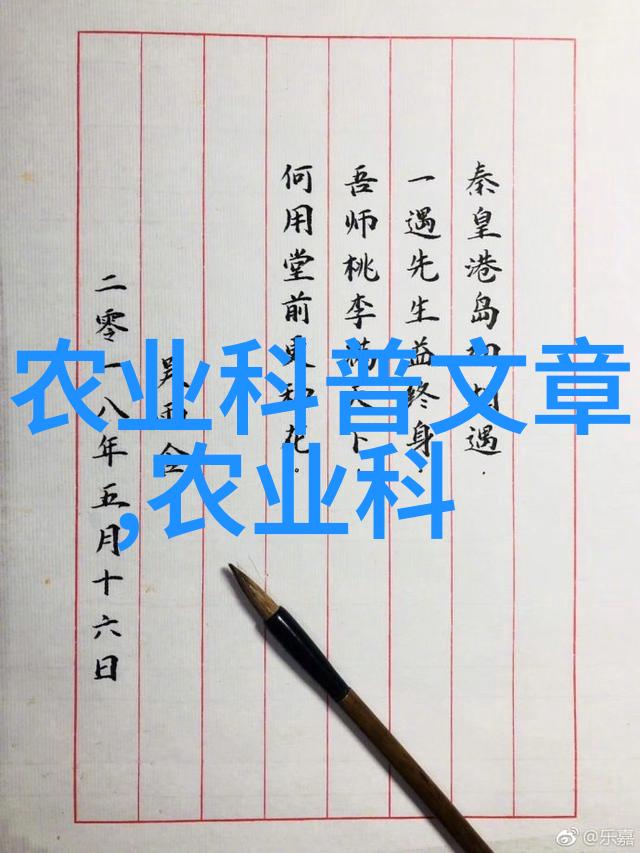 秦皇港岛初相遇.
一遇先生益终身.
吾师桃李满天下.
何用堂前更种花。
吴
二零一八年五月十六日
农业科普文章
,农业科
@乐嘉